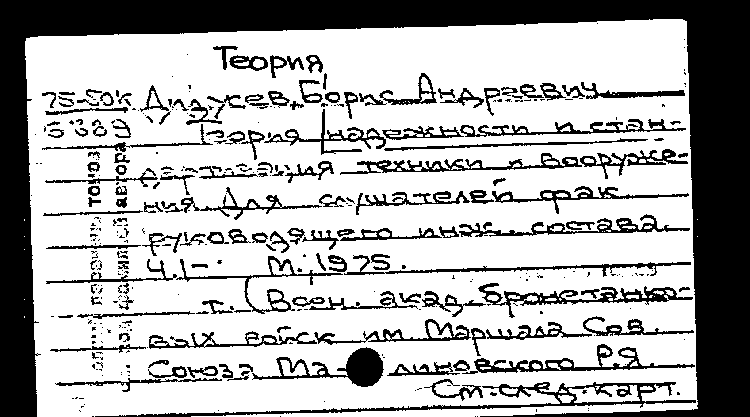 Теория
75-50к Дидусев, Борис Андреевич
5389 Теория надежности и стан-
дартизация техники и вооруже-
ния. Для слушателей фак.
руководящего инж. состава.
Ч.1-. М., 1975.
т. (Воен. акад. бронетанко-
вых войск им. Маршала Сов.
Союза Малиновского Р.Я.
См.след.карт.
томов
автора